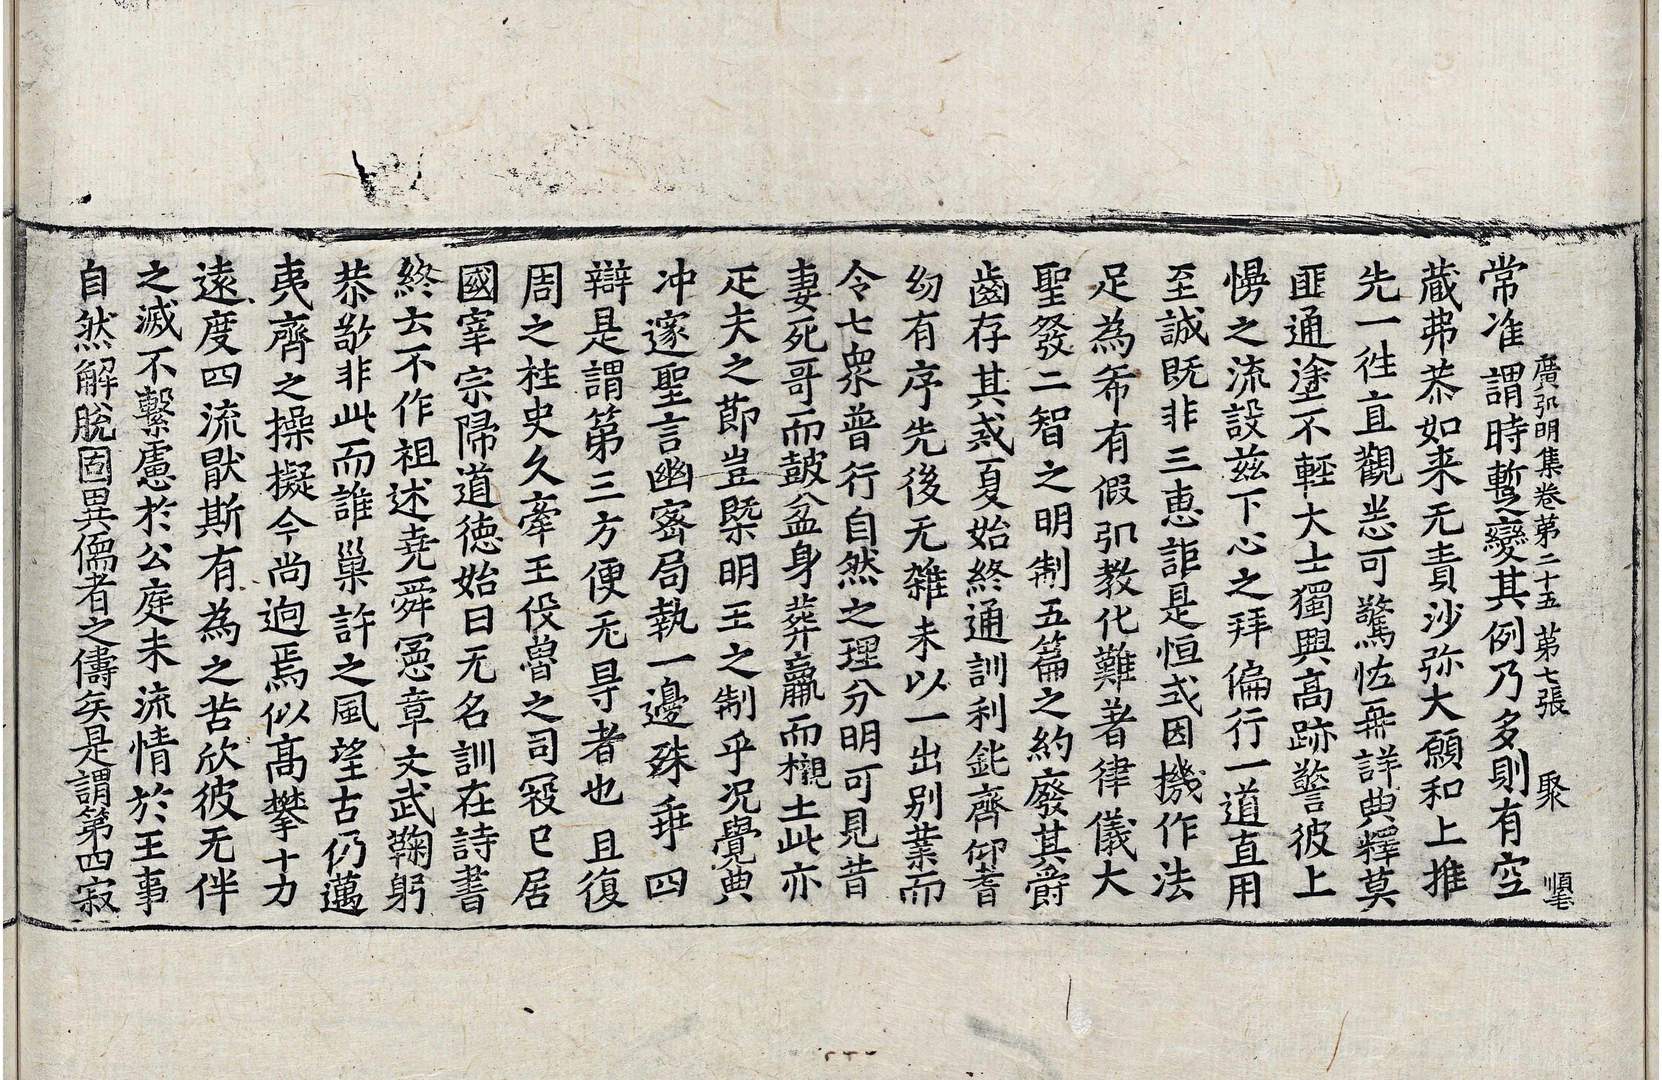 廣弘明集卷第二十五 第七張 聚 順宅
常准謂時蹔變其例乃多則有空
藏弗恭如来无責沙弥大願和上推
先一徃直觀恙可驚恠再詳典釋莫
匪通塗不輕大士獨興高跡警彼上
慢之流設兹下心之拜偏行一道直用
至誠既非三惠詎是恒式因機作法
足為希有假弘教化難著律儀大
聖發二智之明制五篇之約廢其爵
齒存其戒夏始終通訓利鈍齊仰耆
㓜有序先後无雜未以一出别業而
令七衆普行自然之理分明可見昔
妻死哥而鼓盆身葬臝而櫬土此亦
疋夫之莭豈槩明王之制乎况覺典
冲邃聖言幽密局執一邊殊乖四
辯是謂第三方便无㝵者也且復
周之柱史久牽王役魯之司寇已居
國宰宗歸道德始曰无名訓在詩書
終云不作祖述堯舜憲章文武鞠躬
恭敬非此而誰巢許之風望古仍邁
夷齊之操擬今尚逈焉似高攀十力
遠度四流猒斯有為之苦欣彼无伴
之滅不繫慮於公庭未流情於王事
自然解脫固異儒者之儔矣是謂第四寂